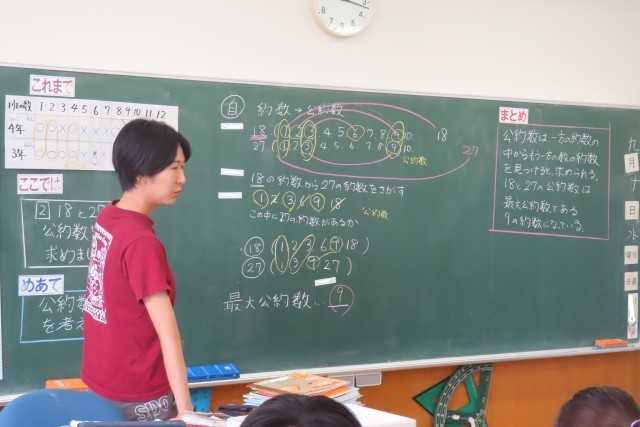 これまで
1 2 3 4 5 6 7 8 9 10 11 12
4年
3年
ここでは
2 18と2
公約数
求めま
めあて
公約数
を考え
自 約数→公約数
18 (1 2 3 4.5 6 7.8 9 10. 18
27 (1 2 3 4.5.6.7.8.9 10. 27
公約数
18の約数から27の約数をさがす
1 2 3 6 9 18 公約数
この中に27の約数があるか
18 (1 2 3 6 9 18)
27 (1 3 9 27)
最大公約数… 9
まとめ
公約数は一方の約数の
中からもう一方の数の約数
を見つけると求められる。
18と27の公約数は
最大公約数である
9の約数になっている。
月
日
水
曜日
日直
spo